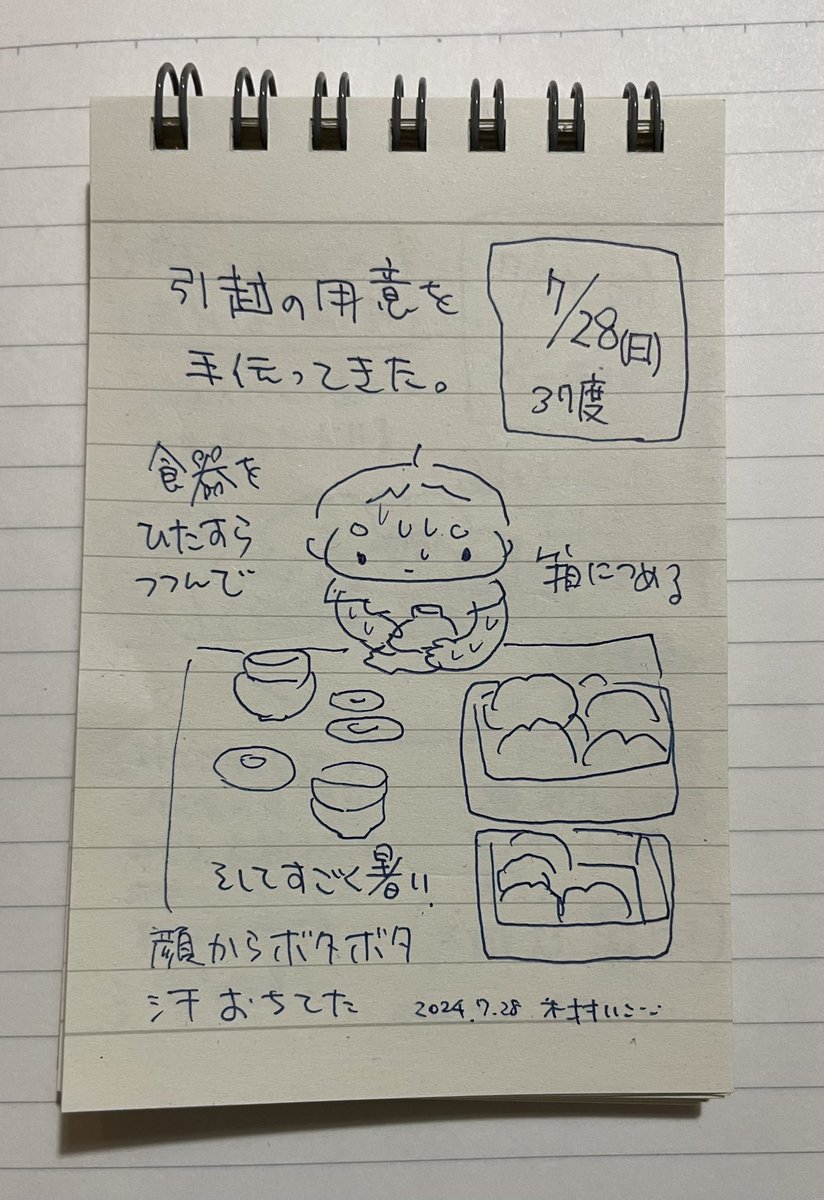 引越の用意を
手伝ってきた。
7/28(日)
37度
食器を
ひたすら
つつんで
箱につめる
そしてすごく暑い
顔からボタボタ
汗おちてた
2024.7.28